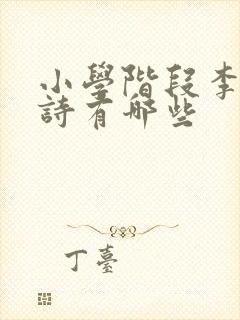 小學階段李
詩有哪些
丁臺